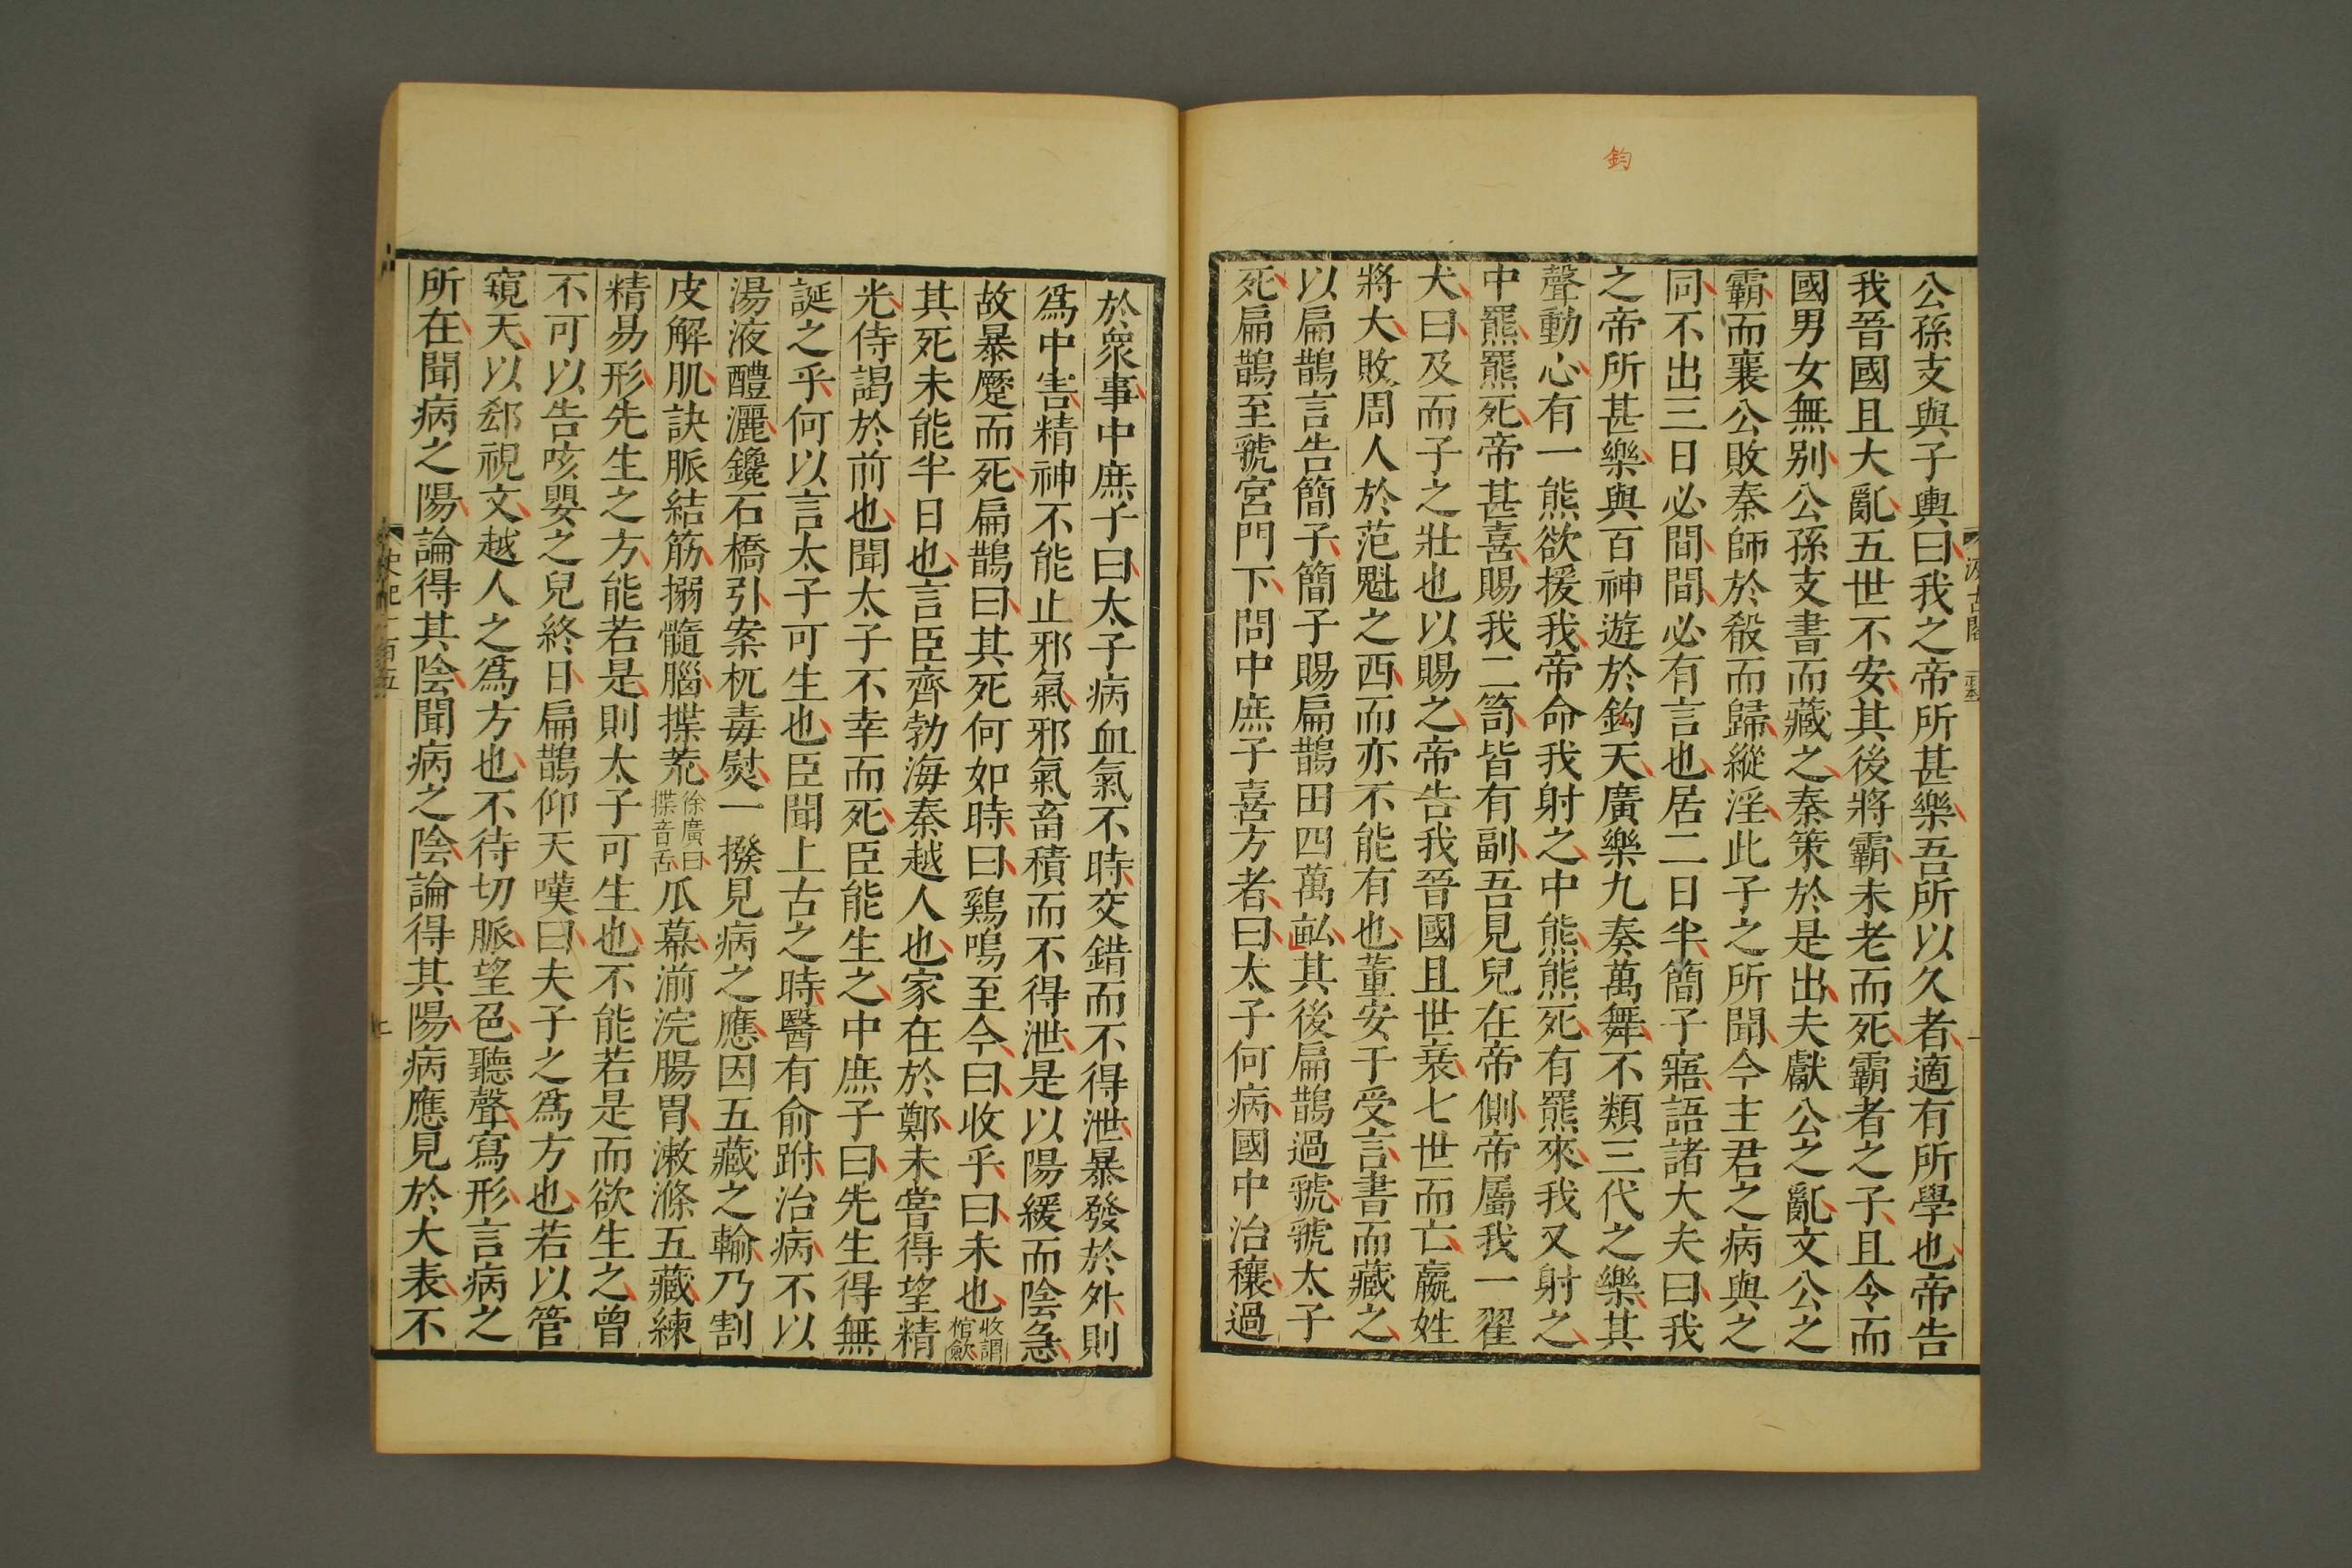 鈞
公孫支與子輿曰我之帝所甚樂吾所以久者適有所學也帝告
我晉國且大亂五世不安其後將霸未老而死霸者之子且令而
國男女無别公孫支書而藏之秦策於是出夫獻公之亂文公之
霸而襄公敗秦師於殽而歸縱淫此子之所聞今主君之病與之
同不出三日必間間必有言也居二日半簡子寤語諸大夫曰我
之帝所甚樂與百神遊於鈎天廣樂九奏萬舞不類三代之樂其
聲動心有一熊欲援我帝命我射之中熊熊死有羆來我又射之
中羆羆死帝甚喜賜我二笥皆有副吾見兒在帝側帝屬我一翟
犬曰及而子之壯也以賜之帝告我晉國且世衰七世而亡嬴姓
將大敗周人於范魁之西而亦不能有也董安于受言書而藏之
以扁鵲言告簡子簡子賜扁鵲田四萬畝其後扁鵲過虢虢太子
死扁鵲至虢宮門下問中庶子喜方者曰太子何病國中治穰過
於衆事中庶子曰太子病血氣不時交錯而不得泄暴發於外則
爲中害精神不能止邪氣邪氣畜積而不得泄是以陽緩而陰急
故暴蹷而死扁鵲曰其死何如時曰鷄鳴至今曰收乎曰未也收謂棺歛
其死未能半日也言臣齊勃海秦越人也家在於鄭未嘗得望精
光侍謁於前也聞太子不幸而死臣能生之中庶子曰先生得無
誕之乎何以言太子可生也臣聞上古之時醫有俞跗治病不以
湯液醴灑鑱石橋引案杌毒熨一撥見病之應因五藏之輸乃割
皮解肌訣脈結筋搦髓腦揲荒徐廣曰揲音舌爪幕湔浣腸胃漱滌五藏練
精易形先生之方能若是則太子可生也不能若是而欲生之曾
不可以告咳嬰之兒終日扁鵲仰天嘆曰夫子之爲方也若以管
窺天以郄視文越人之爲方也不待切脈望色聽聲寫形言病之
所在聞病之陽論得其陰聞病之陰論得其陽病應見於大表不